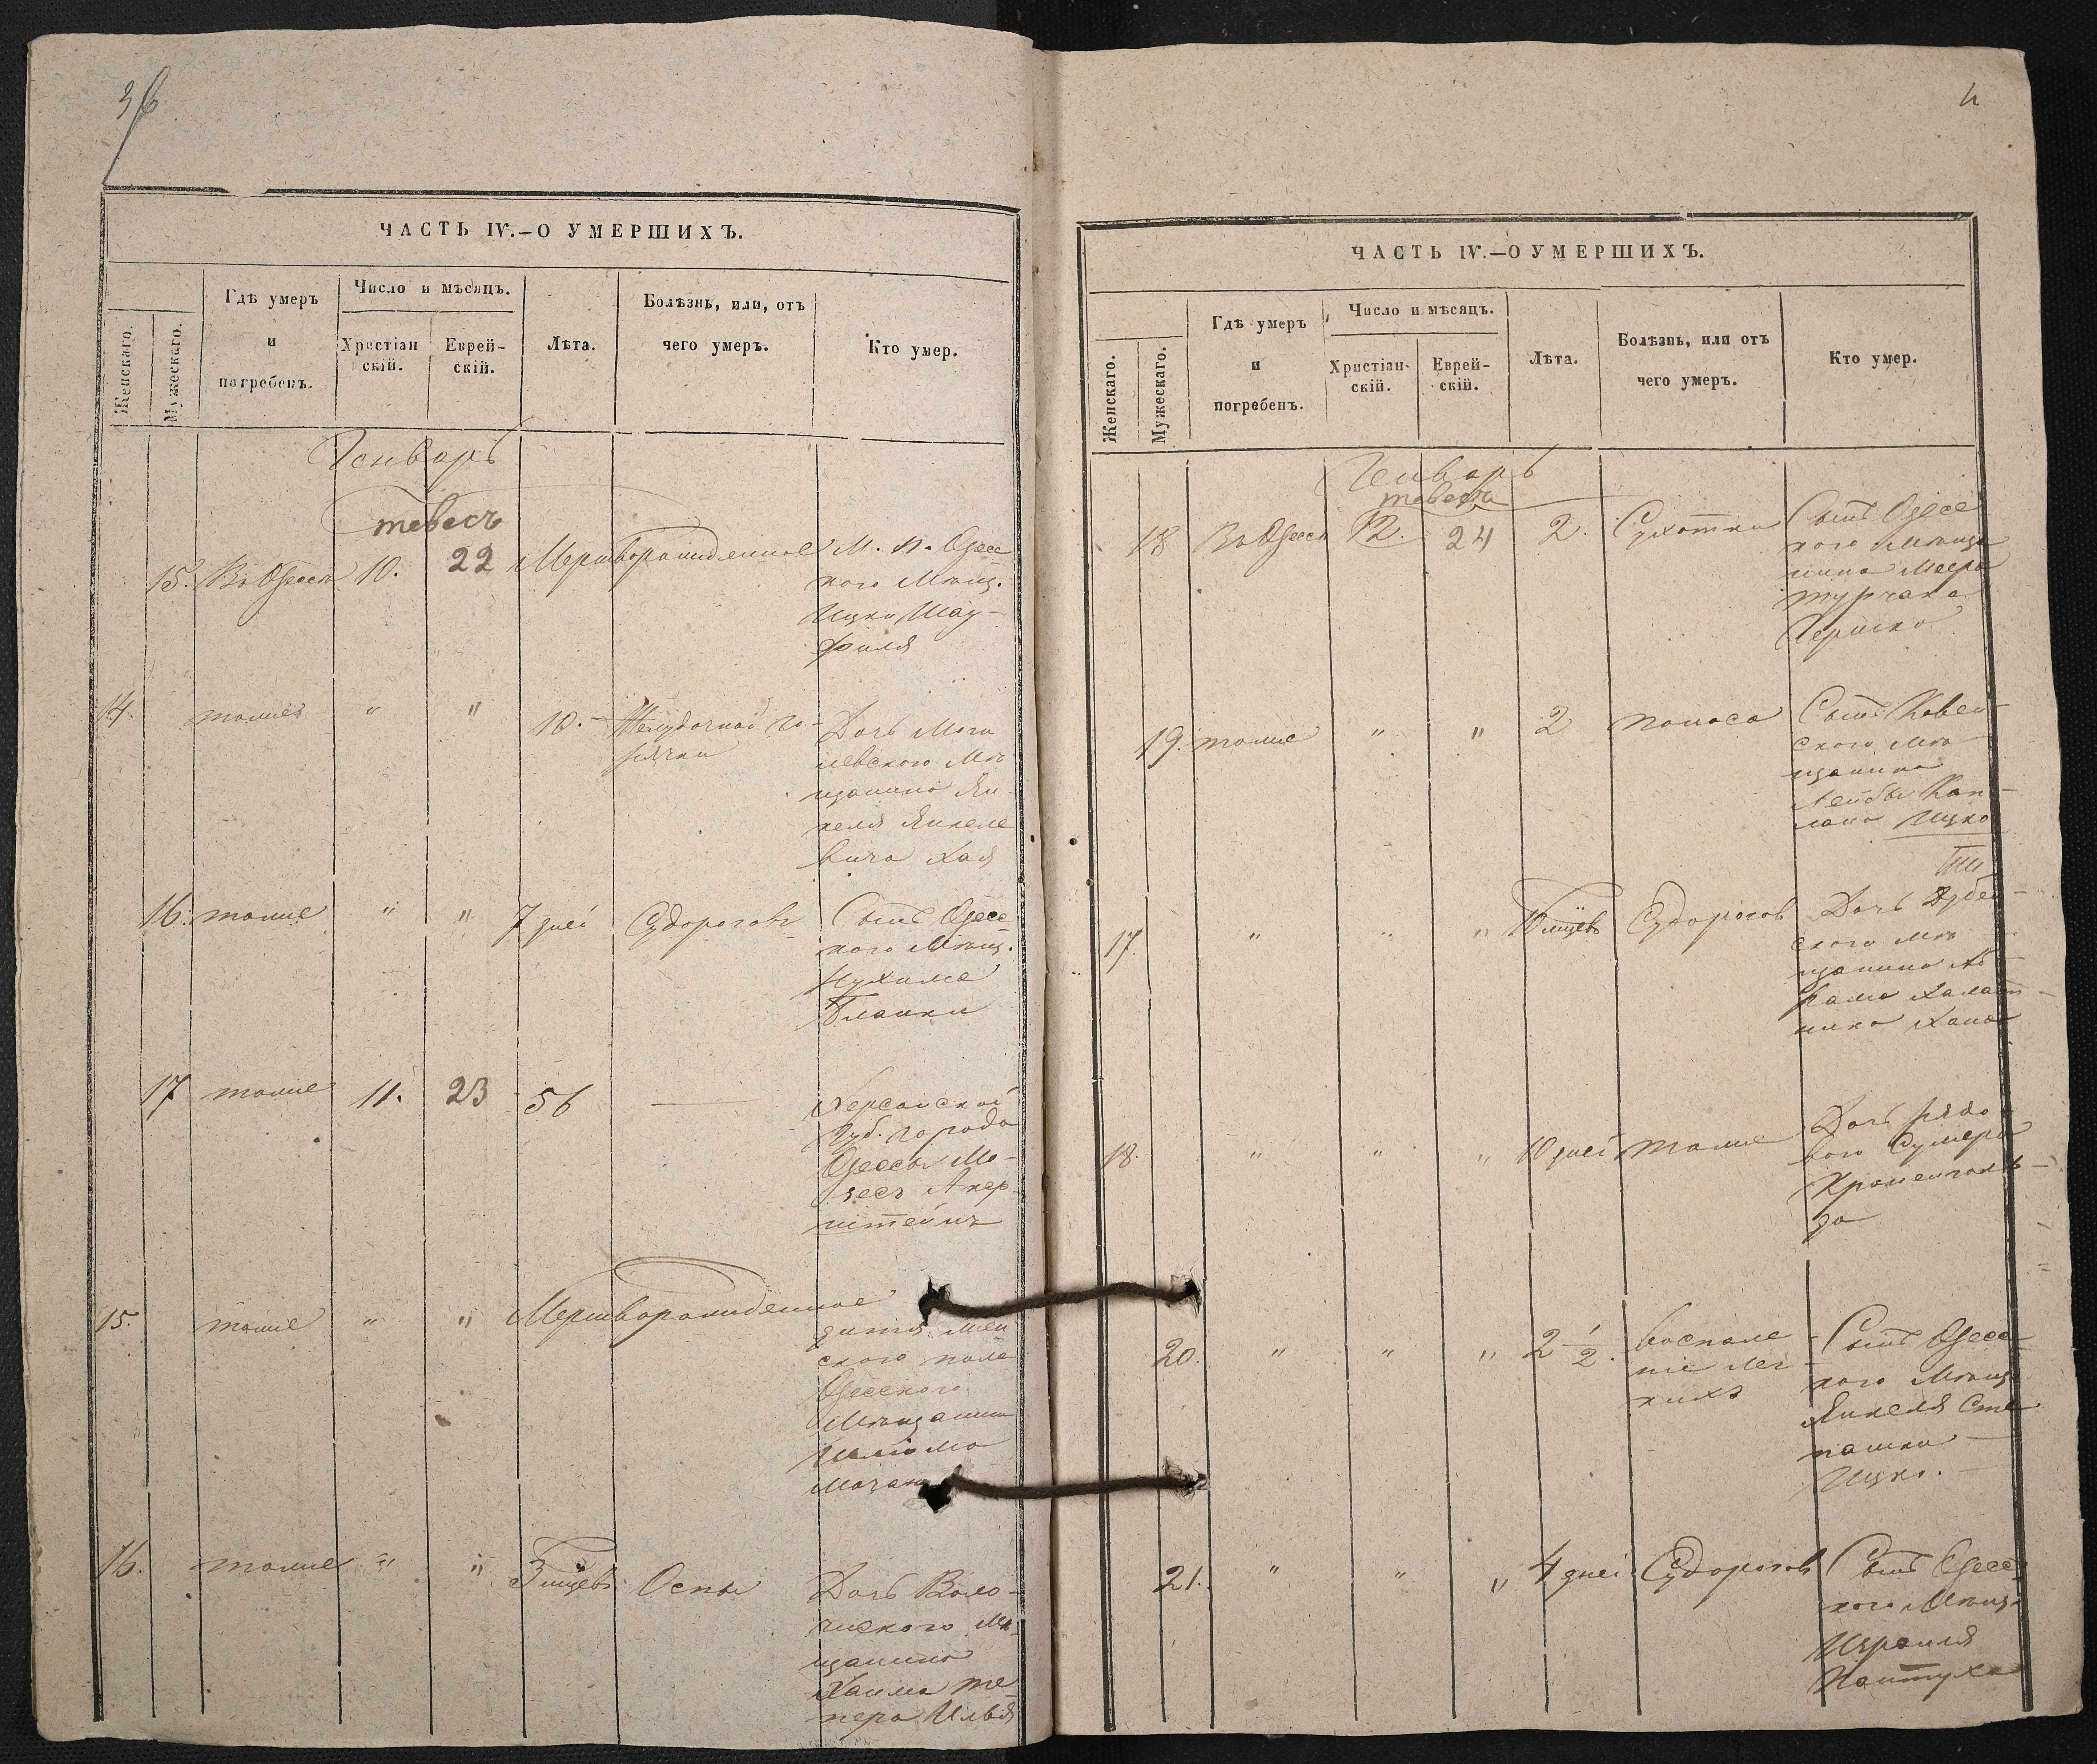 ЧАСТЬ IV.—О УМЕРШИХЪ.
Женскаго.
Мужескаго.
Гдѣ умеръ
и
погребенъ.
Число и мѣсяцъ.
Христіан
скій.
Еврей-
скій.
Лѣта.
Болѣзнь, или, отъ
чего умеръ.
Кто умер.
Генварь
тевесъ
15. Въ Одессѣ 10. 22 Мертворожденное М. п. Одесс
кого Мѣщ.
Ицки Шау-
филя
14. тоже " " 10. Желудочной го-
рячки
Дочь Моги
левского Мѣ
щанина Ян
келя Янкеле
вича Хая
16. тоже " " 7 дней Судороговъ Сынъ Одесс
кого Мѣщ.
Нухима
Бланки
17 тоже 11. 23 56 — Херсонской
Губ. города
Одессы Мо-
зесъ Акер
штейнъ
15. тоже " " Мертворожденное
дитя жен
ского пола
Одесского
Мѣщанина
16. тоже " " 3 мцевъ Оспы Дочь Воло-
чиского Мѣ
щанина
Хаима те
пера Илья
ЧАСТЬ IV.—О УМЕРШИХЪ.
Женскаго.
Мужескаго.
Гдѣ умеръ
и
погребенъ.
Число и мѣсяцъ.
Христіан-
скій.
Еврей-
скій.
Лѣта.
Болѣзнь, или отъ
чего умеръ.
Кто умер.
Генварь
тевесъ
18 Въ Одессѣ 12. 24 2. Сухотки Сынъ Одесс
кого Мѣща
нина Меера
турчака
Гершко
19. тоже " " 2 поноса Сынъ Ковен
ского Мѣ
щанина
Лейбы Кап-
лана Ицко
17. " " " 10 мцевъ Судорогов Дочь Дубен
ского Мѣ
щанина Аб
рама Халат
ника Хана
18. " " " 10 дней тоже Дочь рядо
вого Сумера
Кроменголь
да
20. " " " 2 1/2. воспале
ніе лег
кихъ
Сынъ Одесс
кого Мѣщ.
Янкеля Сте
пашки
Ицко.
21. " " " 4 дней Судорогов Сынъ Одесс
кого Мѣщ.
Израиля